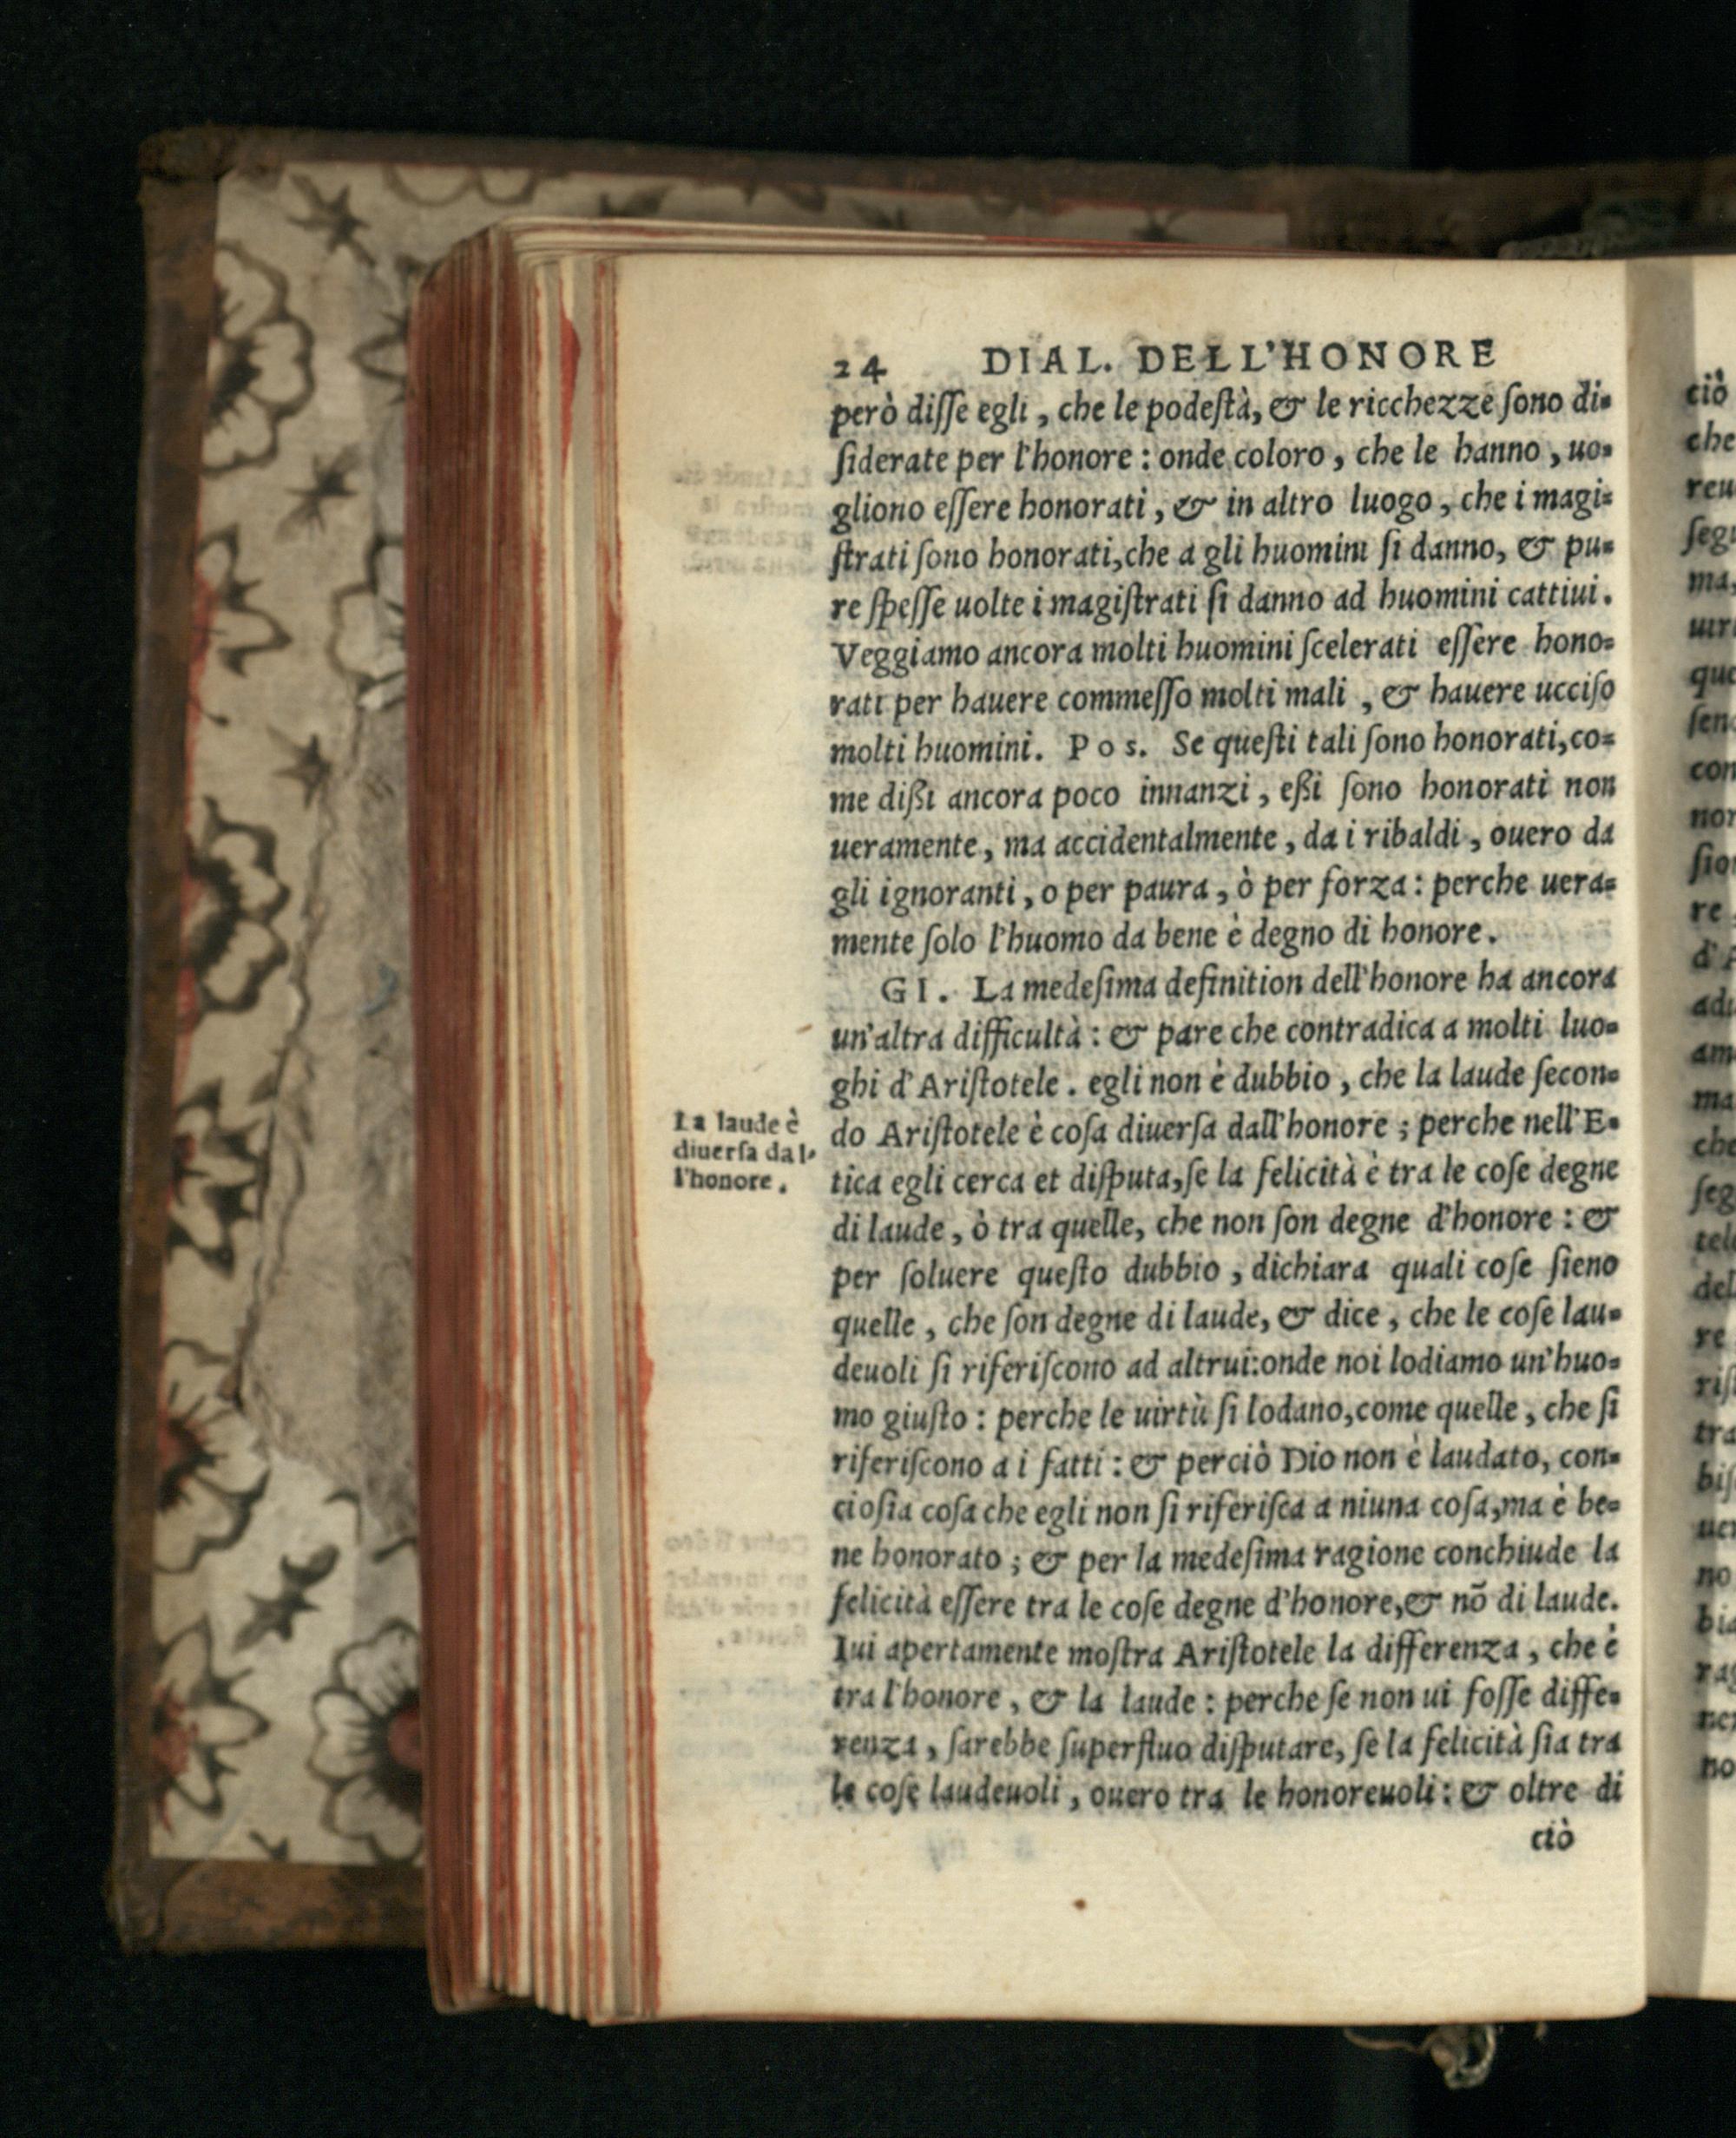 24 DIAL. DELL'HONORE
però diſſe egli, che le podeſtà, & le ricchezze ſono di-
ſiderate per l'honore: onde coloro, che le hanno, uo-
gliono eſſere honorati, & in altro luogo, che i magi-
ſtrati ſono honorati, che a gli huomini ſi danno, & pu-
re ſpeſſe uolte i magiſtrati ſi danno ad huomini cattiui.
Veggiamo ancora molti huomini ſcelerati eſſere hono-
rati per hauere commeſſo molti mali, & hauere ucciſo
molti huomini. Pos. Se queſti tali ſono honorati, co-
me dißi ancora poco innanzi, eßi ſono honorati non
ueramente, ma accidentalmente, da i ribaldi, ouero da
gli ignoranti, o per paura, ò per forza: perche uera-
mente ſolo l'huomo da bene è degno di honore.
GI. La medeſima definition dell'honore ha ancora
un'altra difficultà: & pare che contradica a molti luo-
ghi d'Ariſtotele. egli non è dubbio, che la laude ſecon-
do Ariſtotele è coſa diuerſa dall'honore; perche nell'E-
tica egli cerca et diſputa, ſe la felicità è tra le coſe degne
di laude, ò tra quelle, che non ſon degne d'honore: &
per ſoluere queſto dubbio, dichiara quali coſe ſieno
quelle, che ſon degne di laude, & dice, che le coſe lau-
deuoli ſi riferiſcono ad altrui: onde noi lodiamo un'huo-
mo giuſto: perche le uirtù ſi lodano, come quelle, che ſi
riferiſcono a i fatti: & perciò Dio non è laudato, con-
cioſia coſa che egli non ſi riferiſca a niuna coſa, ma è be-
ne honorato; & per la medeſima ragione conchiude la
felicità eſſere tra le coſe degne d'honore, & nõ di laude.
Iui apertamente moſtra Ariſtotele la differenza, che è
tra l'honore, & la laude: perche ſe non ui foſſe diffe-
renza, ſarebbe ſuperfluo diſputare, ſe la felicità ſia tra
le coſe laudeuoli, ouero tra le honoreuoli: & oltre di
ciò
La laude è
diuerſa dal-
l'honore.